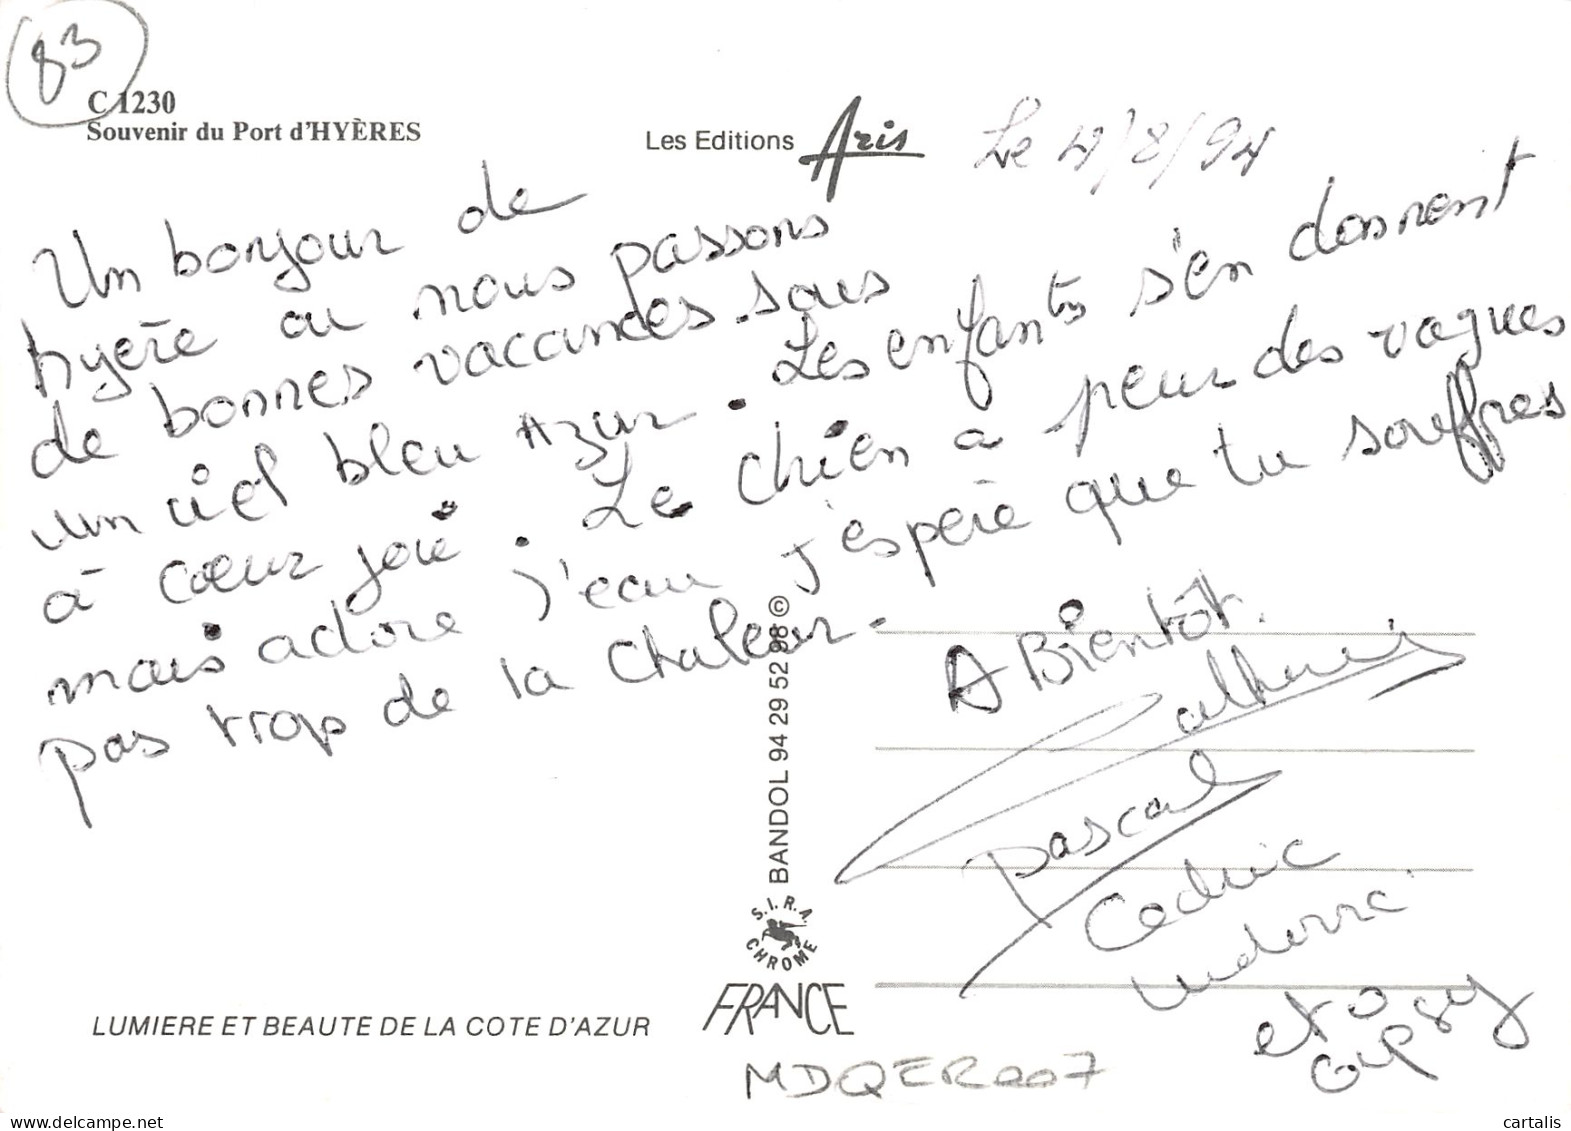 83
C 1230
Souvenir du Port d'HYÈRES
Les Editions Aris
Le 4/8/94
Un bonjour de
hyère ou nous passons
de bonnes vacances sous
un ciel bleu Azur. Les enfants s'en donnent
à cœur joie. Le chien a peur des vagues
mais adore l'eau j'espère que tu souffres
pas trop de la chaleur.
A Bientôt.
Pascal
Cedric
et
Gipsy
BANDOL 94 29 52 98 ©
S.I.R.A.
CHROME
FRANCE
LUMIERE ET BEAUTE DE LA COTE D'AZUR
MDQER007
cartalis